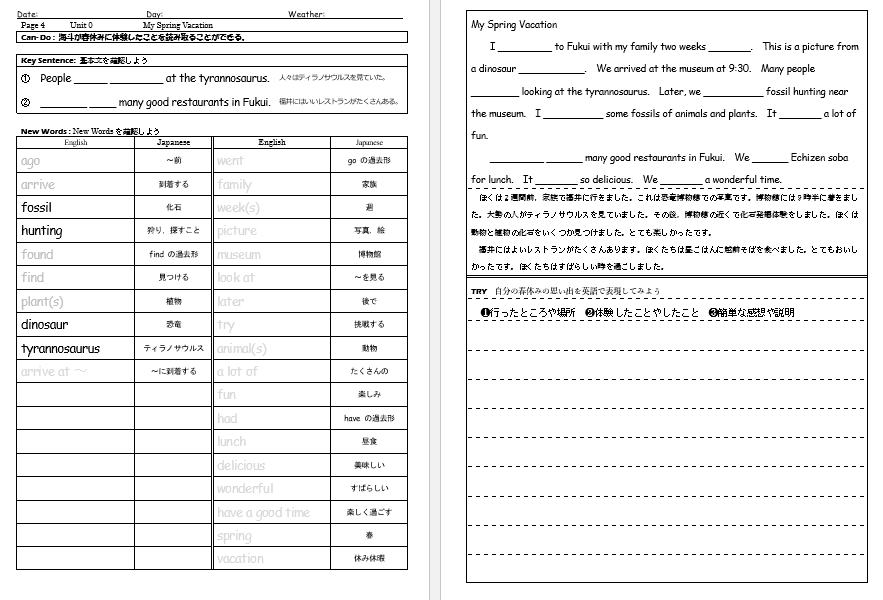 Date: Day: Weather:
Page 4 Unit 0 My Spring Vacation
Can-Do : 海斗が春休みに体験したことを読み取ることができる。
Key Sentence: 基本文を確認しよう
① People ______ ______ at the tyrannosaurus. 人々はティラノサウルスを見ていた。
② ______ ______ many good restaurants in Fukui. 福井にはいいレストランがたくさんある。
New Words : New Words を確認しよう
English Japanese English Japanese
ago ～前 went go の過去形
arrive 到着する family 家族
fossil 化石 week(s) 週
hunting 狩り、探すこと picture 写真、絵
found find の過去形 museum 博物館
find 見つける look at ～を見る
plant(s) 植物 later 後で
dinosaur 恐竜 try 挑戦する
tyrannosaurus ティラノサウルス animal(s) 動物
arrive at ～ ～に到着する a lot of たくさんの
fun 楽しみ
had have の過去形
lunch 昼食
delicious 美味しい
wonderful すばらしい
have a good time 楽しく過ごす
spring 春
vacation 休み休暇
My Spring Vacation
I ______ to Fukui with my family two weeks ______. This is a picture from
a dinosaur ______. We arrived at the museum at 9:30. Many people
______ looking at the tyrannosaurus. Later, we ______ fossil hunting near
the museum. I ______ some fossils of animals and plants. It ______ a lot of
fun.
______ ______ many good restaurants in Fukui. We ______ Echizen soba
for lunch. It ______ so delicious. We ______ a wonderful time.
ぼくは2週間前、家族で福井に行きました。これは恐竜博物館での写真です。博物館には9時半に着きまし
た。大勢の人がティラノサウルスを見ていました。その後、博物館の近くで化石発掘体験をしました。ぼくは
動物と植物の化石をいくつか見つけました。とても楽しかったです。
福井にはよいレストランがたくさんあります。ぼくたちは昼ごはんに越前そばを食べました。とてもおいし
かったです。ぼくたちはすばらしい時を過ごしました。
TRY 自分の春休みの思い出を英語で表現してみよう
❶行ったところや場所 ❷体験したことやしたこと ❸簡単な感想や説明